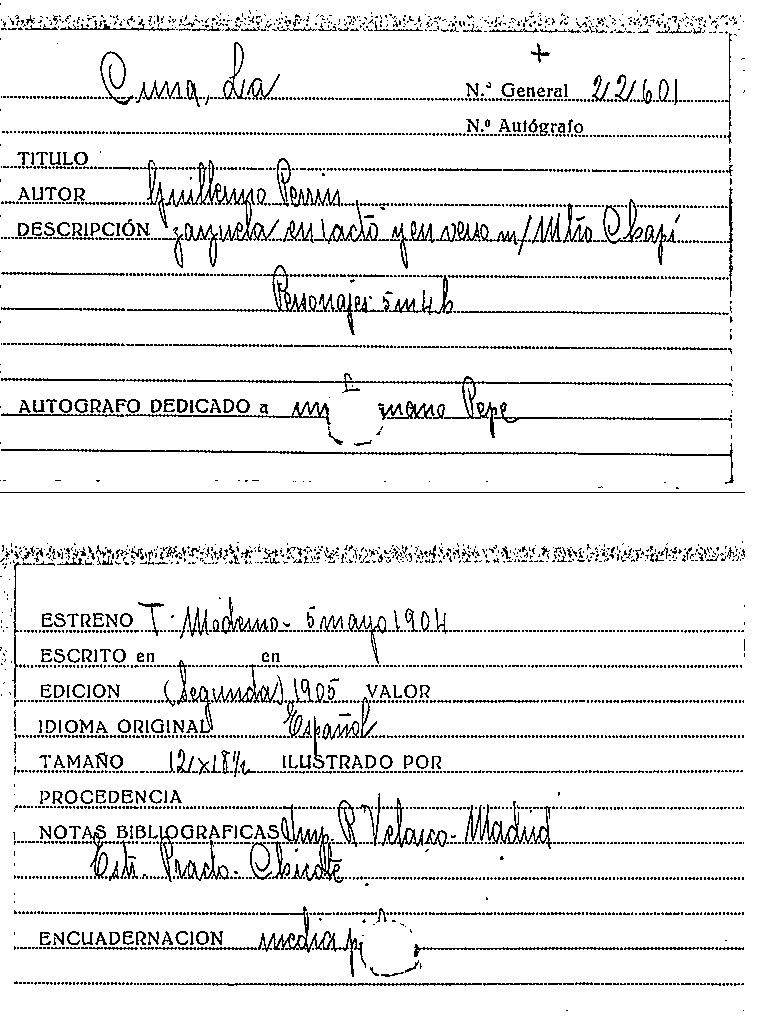 +
Cuna, La
N.º General 22601
N.º Autógrafo
TITULO
AUTOR Guillermo Perrin
DESCRIPCIÓN zarzuela en 1 acto y en verso m/ Mtro Chapí
Personajes 5 m 4 h
AUTOGRAFO DEDICADO a mano Pepe
ESTRENO T. Moderno - 5 mayo 1904
ESCRITO en en
EDICION (Segunda) 1905 VALOR
IDIOMA ORIGINAL Español
TAMAÑO 12x18½ ILUSTRADO POR
PROCEDENCIA
NOTAS BIBLIOGRAFICAS Imp. R Velasco - Madrid
Estr. Prado - Chicote
ENCUADERNACION media